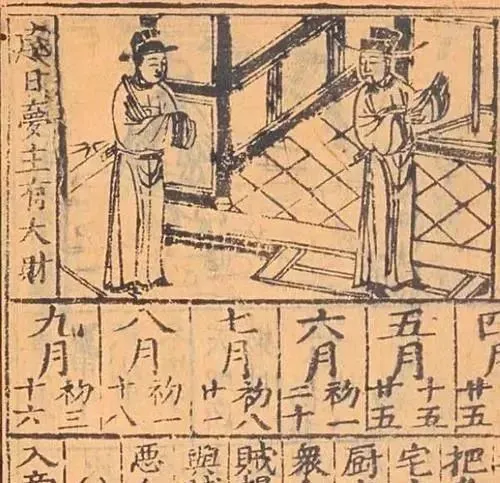 日夢主有大財
四月
廿五
五月
十五
廿五
六月
初一
二十
七月
初八
廿一
八月
初一
十八
九月
初三
十六
把
宅
厨
衆
賊
與
悪
入